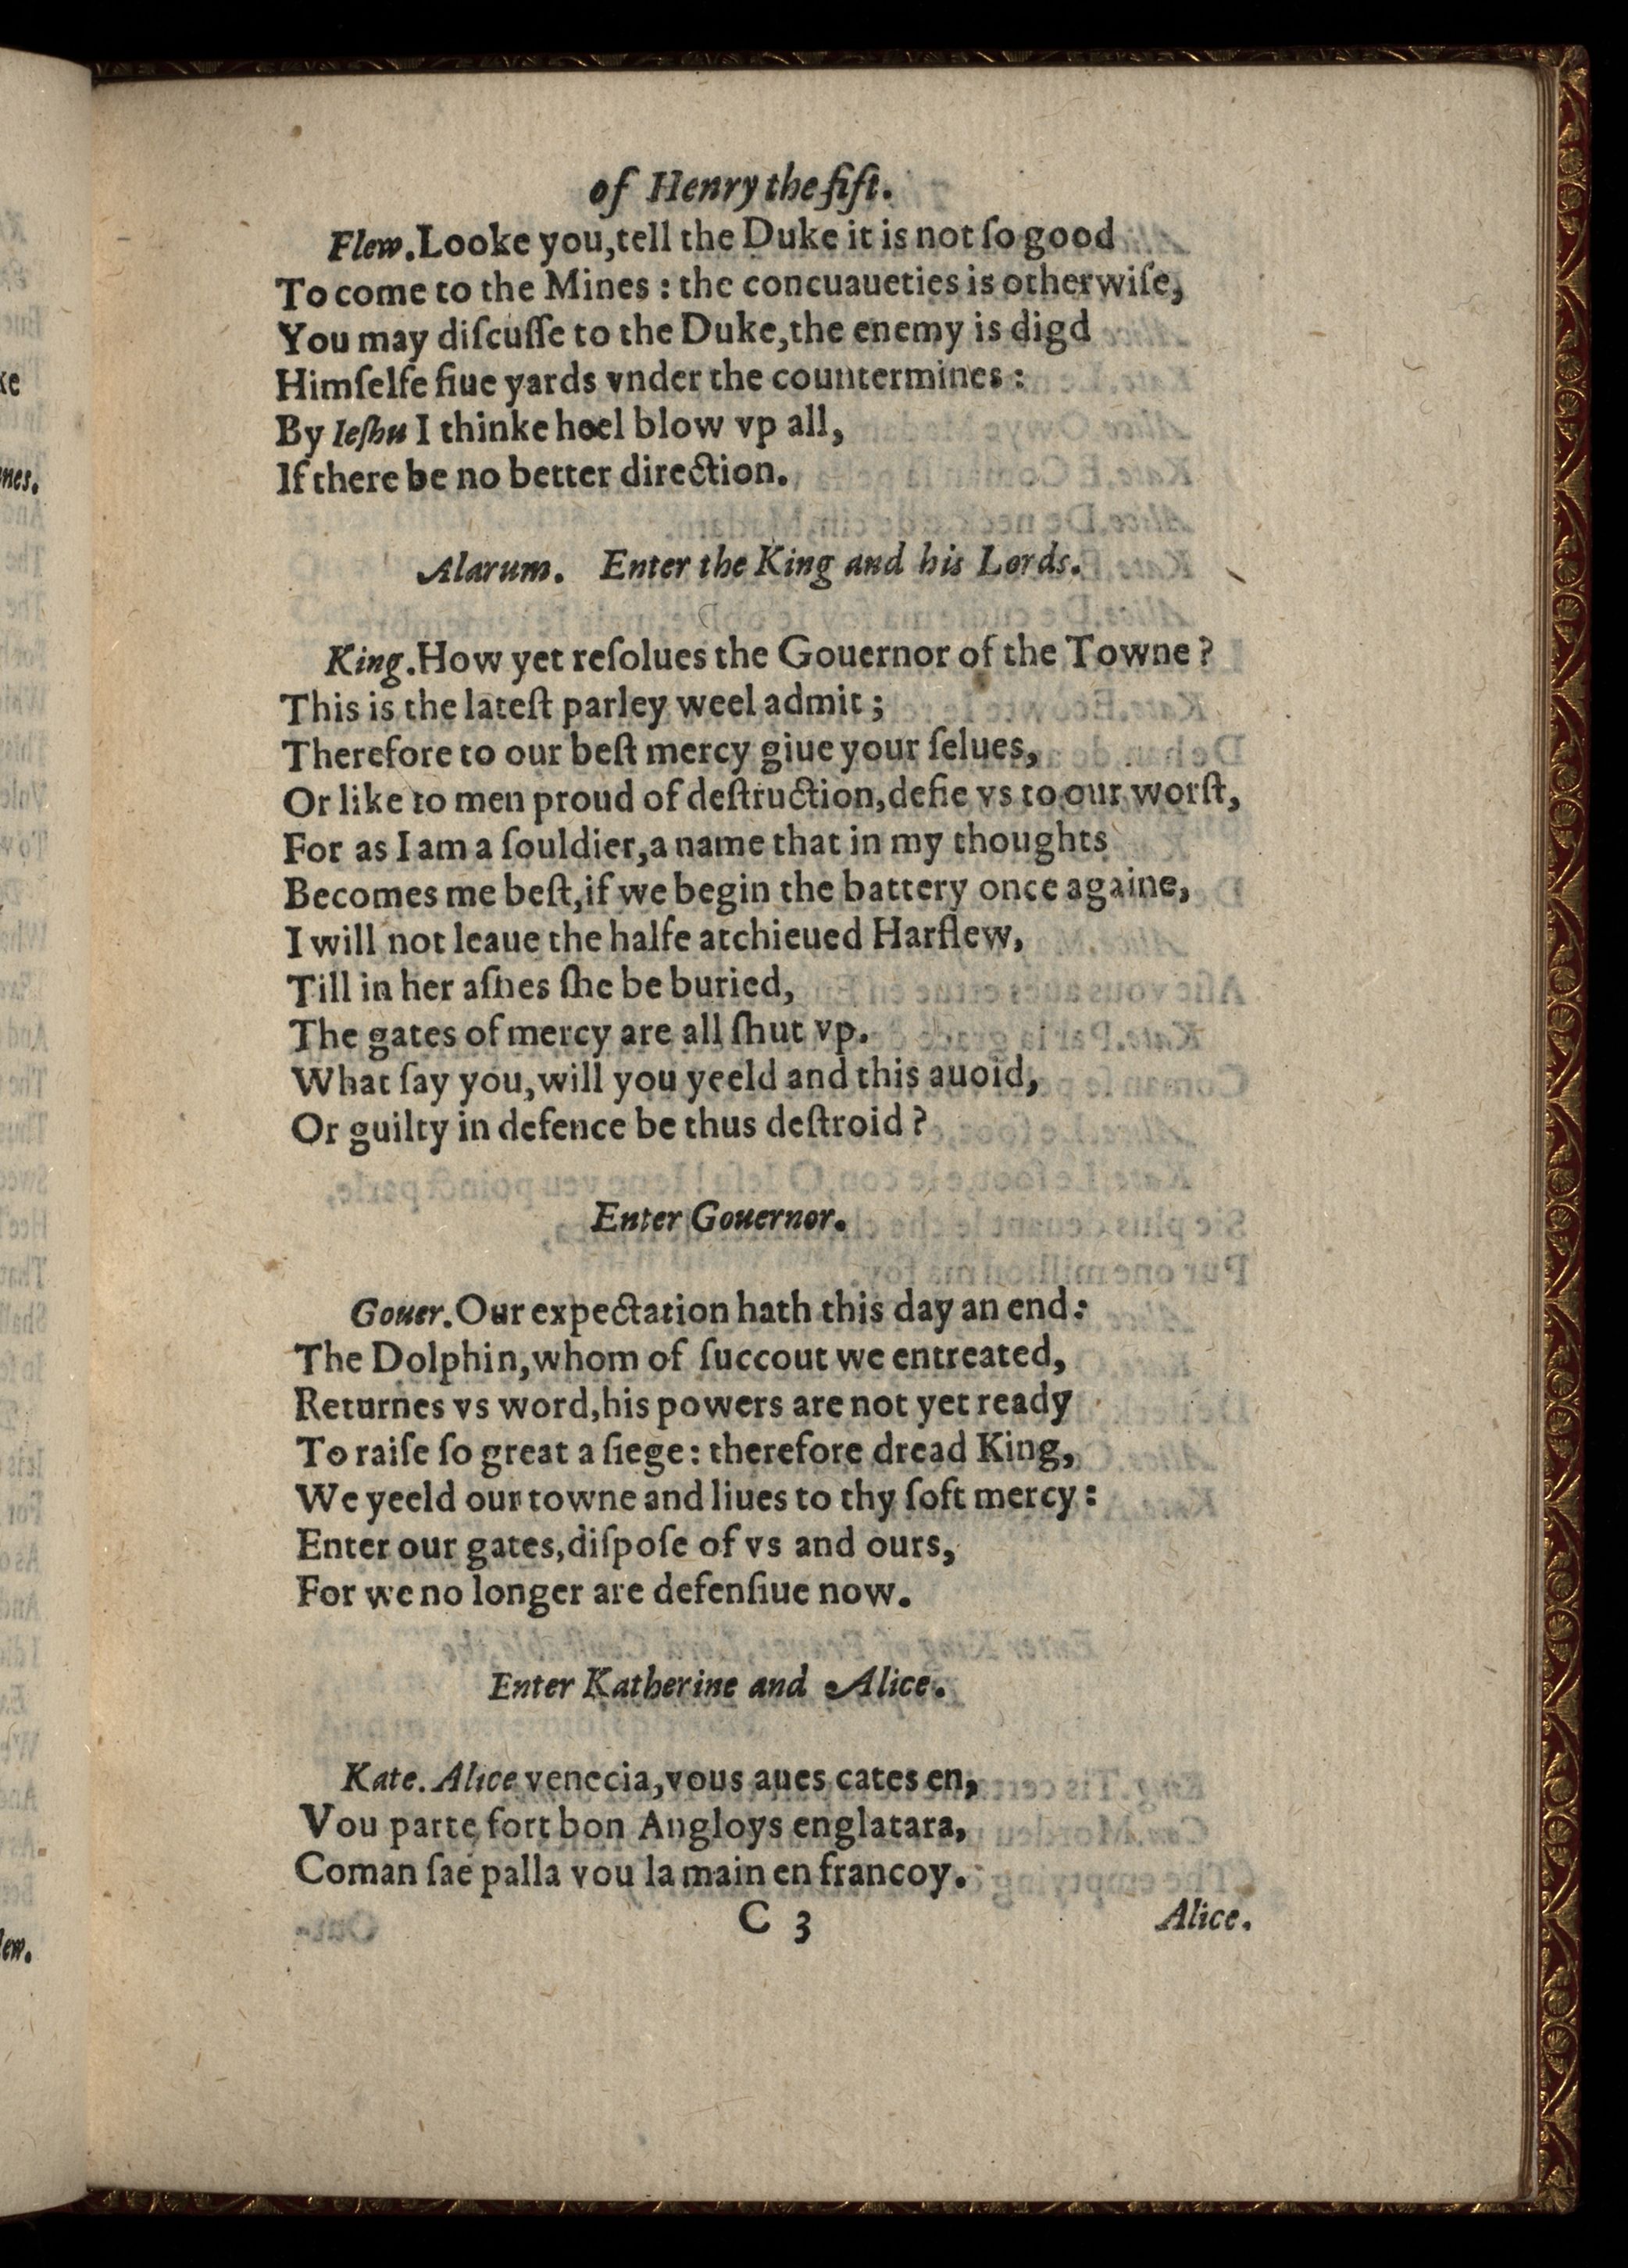 of Henry the fift.
Flew. Looke you, tell the Duke it is not ſo good
To come to the Mines : the concuaueties is otherwiſe,
You may diſcuſſe to the Duke, the enemy is digd
Himſelfe fiue yards vnder the countermines :
By Ieſhu I thinke heel blow vp all,
If there be no better direction.
Alarum. Enter the King and his Lords.
King. How yet reſolues the Gouernor of the Towne ?
This is the lateſt parley weel admit ;
Therefore to our beſt mercy giue your ſelues,
Or like to men proud of deſtruction, defie vs to our worſt,
For as I am a ſouldier, a name that in my thoughts
Becomes me beſt, if we begin the battery once againe,
I will not leaue the halfe atchieued Harflew,
Till in her aſhes ſhe be buried,
The gates of mercy are all ſhut vp.
What ſay you, will you yeeld and this auoid,
Or guilty in defence be thus deſtroid ?
Enter Gouernor.
Gouer. Our expectation hath this day an end :
The Dolphin, whom of ſuccout we entreated,
Returnes vs word, his powers are not yet ready
To raiſe ſo great a ſiege : therefore dread King,
We yeeld our towne and liues to thy ſoft mercy :
Enter our gates, diſpoſe of vs and ours,
For we no longer are defenſiue now.
Enter Katherine and Alice.
Kate. Alice venecia, vous aues cates en,
Vou parte fort bon Angloys englatara,
Coman ſae palla vou la main en francoy.
C 3 Alice.